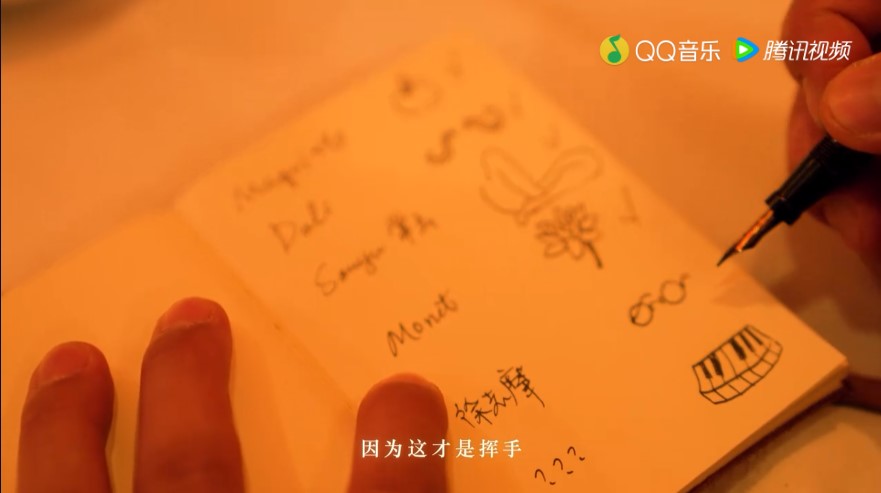 QQ音乐 腾讯视频
Magritte
Dali
Sanyu 常玉
Monet
徐志摩
???
因为这才是挥手